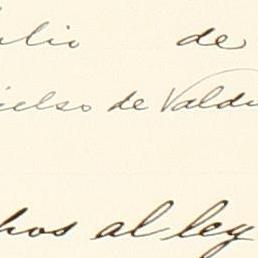 ulio de
ielso de Valdi
hos al ley